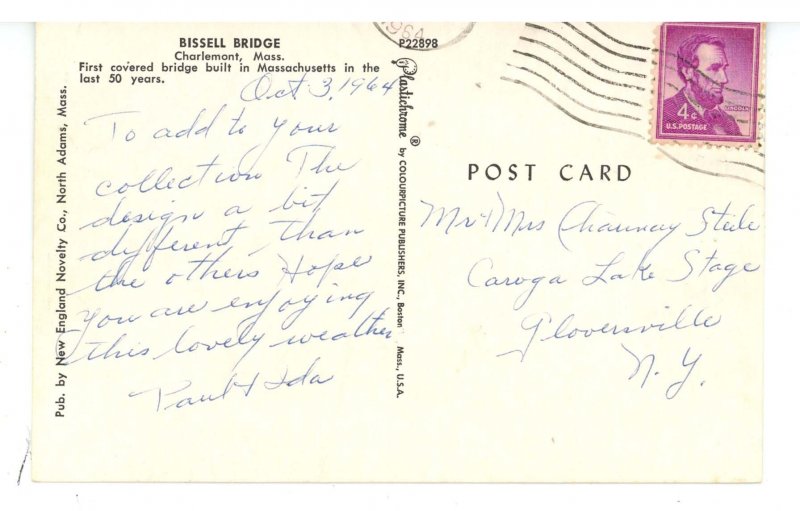 BISSELL BRIDGE
Charlemont, Mass.
First covered bridge built in Massachusetts in the
last 50 years.
Oct 3, 1964
To add to your
collection The
design a bit
different, than
the others Hope
you are enjoying
this lovely weather
Paul & Ida
Pub. by New England Novelty Co., North Adams, Mass.
P22898
Plastichrome ® by COLOURPICTURE PUBLISHERS, INC., Boston Mass., U.S.A.
1964
4¢
LINCOLN
U.S. POSTAGE
POST CARD
Mr & Mrs Chauncey Steele
Caroga Lake Stage
Gloversville
N. Y.